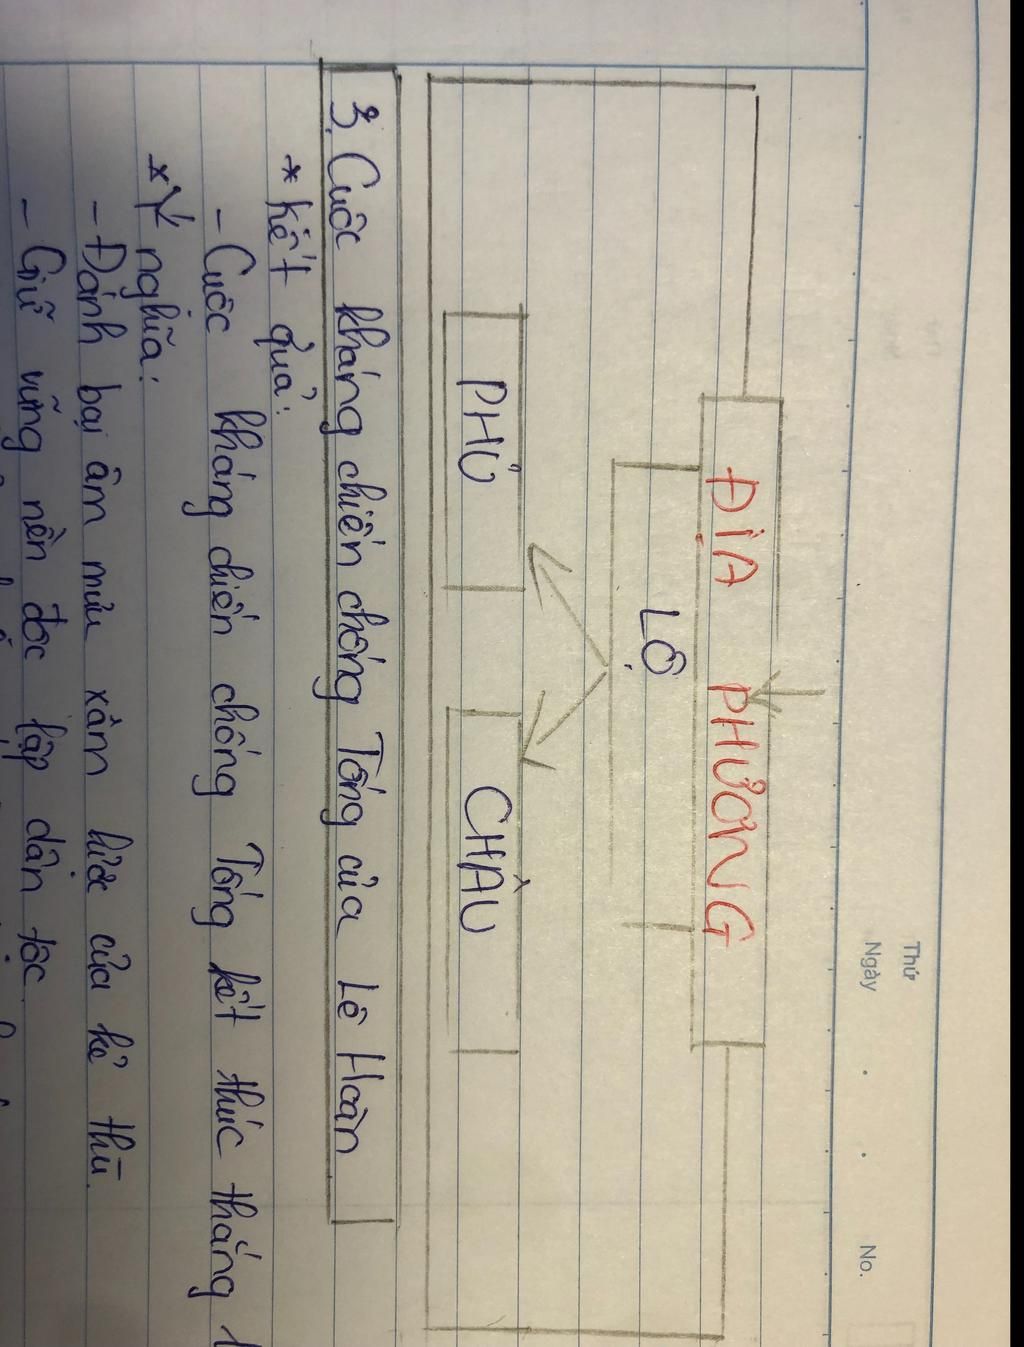 Thứ
Ngày . . No.
ĐỊA PHƯƠNG
LỘ
PHỦ CHÂU
3. Cuộc kháng chiến chống Tống của Lê Hoàn
* Kết quả:
- Cuộc kháng chiến chống Tống kết thúc thắng
* Ý nghĩa:
- Đánh bại âm mưu xâm lược của kẻ thù.
- Giữ vững nền độc lập dân tộc